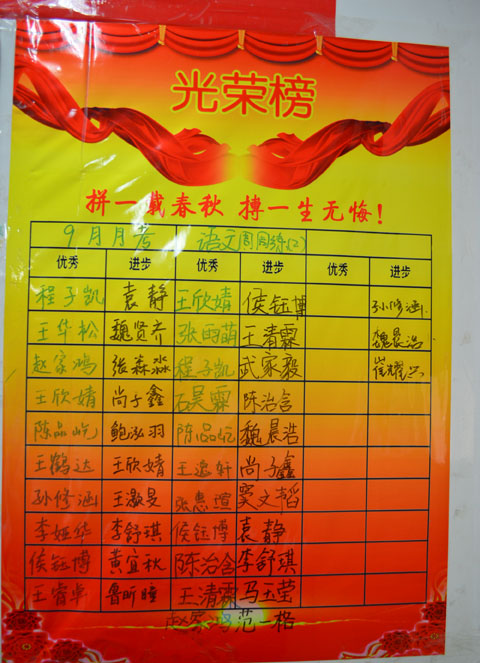 光荣榜
拼一载春秋 搏一生无悔!
9月月考 语文周周练(2)
优秀 进步 优秀 进步 优秀 进步
程子凯 袁静 王欣婧 侯钰博 孙修涵
王华松 魏贤齐 张雨萌 王清霖 魏晨浩
赵家鸿 张森淼 程子凯 武家毅 崔耀
王欣婧 尚子鑫 石昊霖 陈治含
陈品屹 鲍泓羽 陈品屹 魏晨浩
王鹤达 王欣婧 王逸轩 尚子鑫
孙修涵 王潋旻 张惠瑄 窦文韬
李娅华 李舒琪 侯钰博 袁静
侯钰博 黄宜秋 陈治含 李舒琪
王睿卓 鲁昕曈 王清霖 马玉莹
赵家鸿 范一格